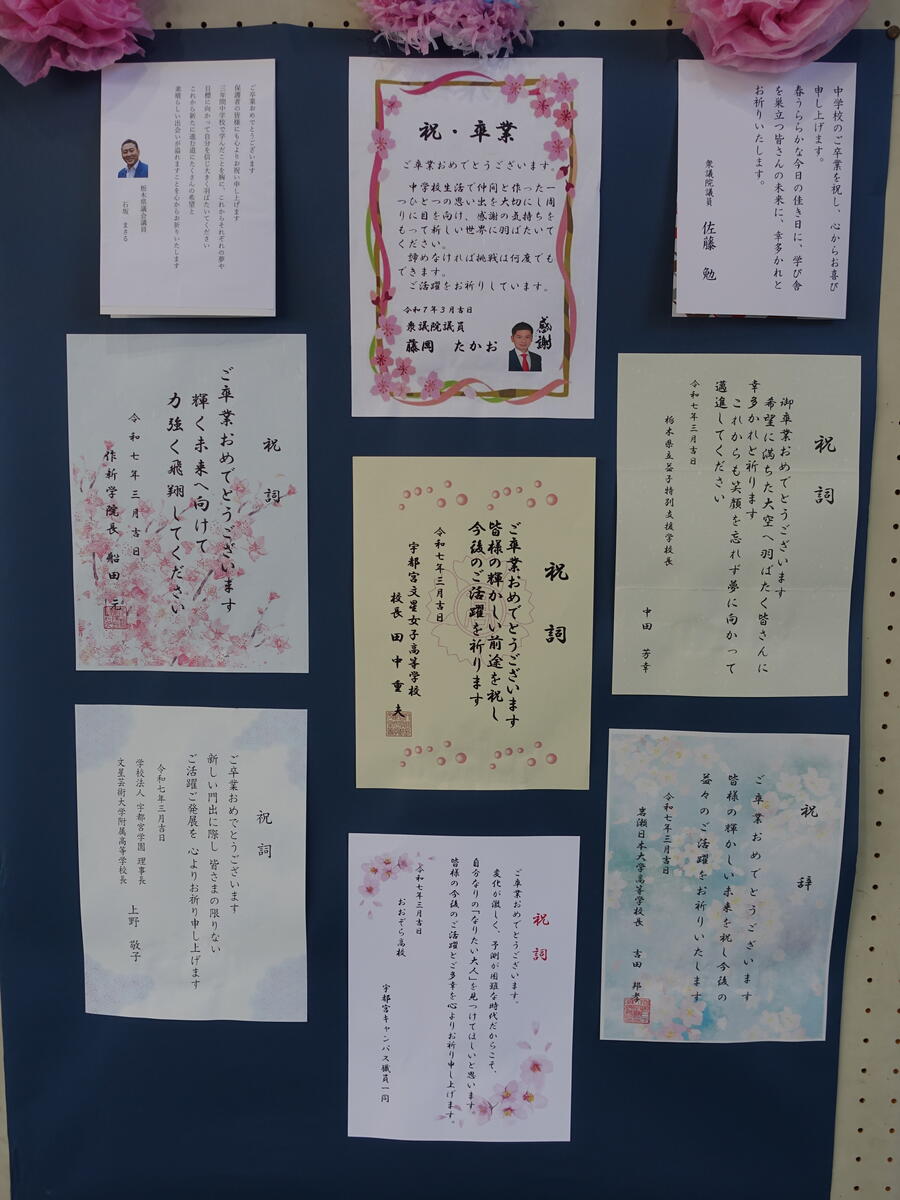 ご卒業おめでとうございます
保護者の皆様にも心よりお祝い申し上げます
三年間中学校で学んだことを胸に、これからそれぞれの夢や
目標に向かって自分を信じ大きく羽ばたいてください
これから新たに進む道にたくさんの希望と
素晴らしい出会いが溢れますことを心からお祈りいたします
栃木県議会議員
石坂 まさる
祝・卒業
ご卒業おめでとうございます。
中学校生活で仲間と作った一
つひとつの思い出を大切にし周
りに目を向け、感謝の気持ちを
もって新しい世界に羽ばたいて
ください。
諦めなければ挑戦は何度でも
できます。
ご活躍をお祈りしています。
令和7年3月吉日
衆議院議員
藤岡 たかお
感謝
中学校のご卒業を祝し、心からお喜び
申し上げます。
春うららかな今日の佳き日に、学び舎
を巣立つ皆さんの未来に、幸多かれと
お祈りいたします。
衆議院議員 佐藤 勉
祝詞
ご卒業おめでとうございます
輝く未来へ向けて
力強く飛翔してください
令和七年三月吉日
作新学院長 船田 元
祝詞
ご卒業おめでとうございます
皆様の輝かしい前途を祝し
今後のご活躍を祈ります
令和七年三月吉日
宇都宮文星女子高等学校
校長 田中重夫
祝詞
御卒業おめでとうございます
希望に満ちた大空へ羽ばたく皆さんに
幸多かれと祈ります
これからも笑顔を忘れず夢に向かって
邁進してください
令和七年三月吉日
栃木県立益子特別支援学校長
中田 芳幸
祝詞
ご卒業おめでとうございます
新しい門出に際し 皆さまの限りない
ご活躍ご発展を 心よりお祈り申し上げます
令和七年三月吉日
学校法人 宇都宮学園 理事長
文星芸術大学附属高等学校長
上野 敬子
祝詞
ご卒業おめでとうございます。
変化が激しく、予測が困難な時代だからこそ、
自分なりの「なりたい大人」を見つけてほしいと思います。
皆様の今後のご活躍とご多幸を心よりお祈り申し上げます。
令和七年三月吉日
おおぞら高校
宇都宮キャンパス職員一同
祝辞
ご卒業おめでとうございます
皆様の輝かしい未来を祝し今後の
益々のご活躍をお祈りいたします
令和七年三月吉日
岩瀬日本大学高等学校長 吉田 邦孝